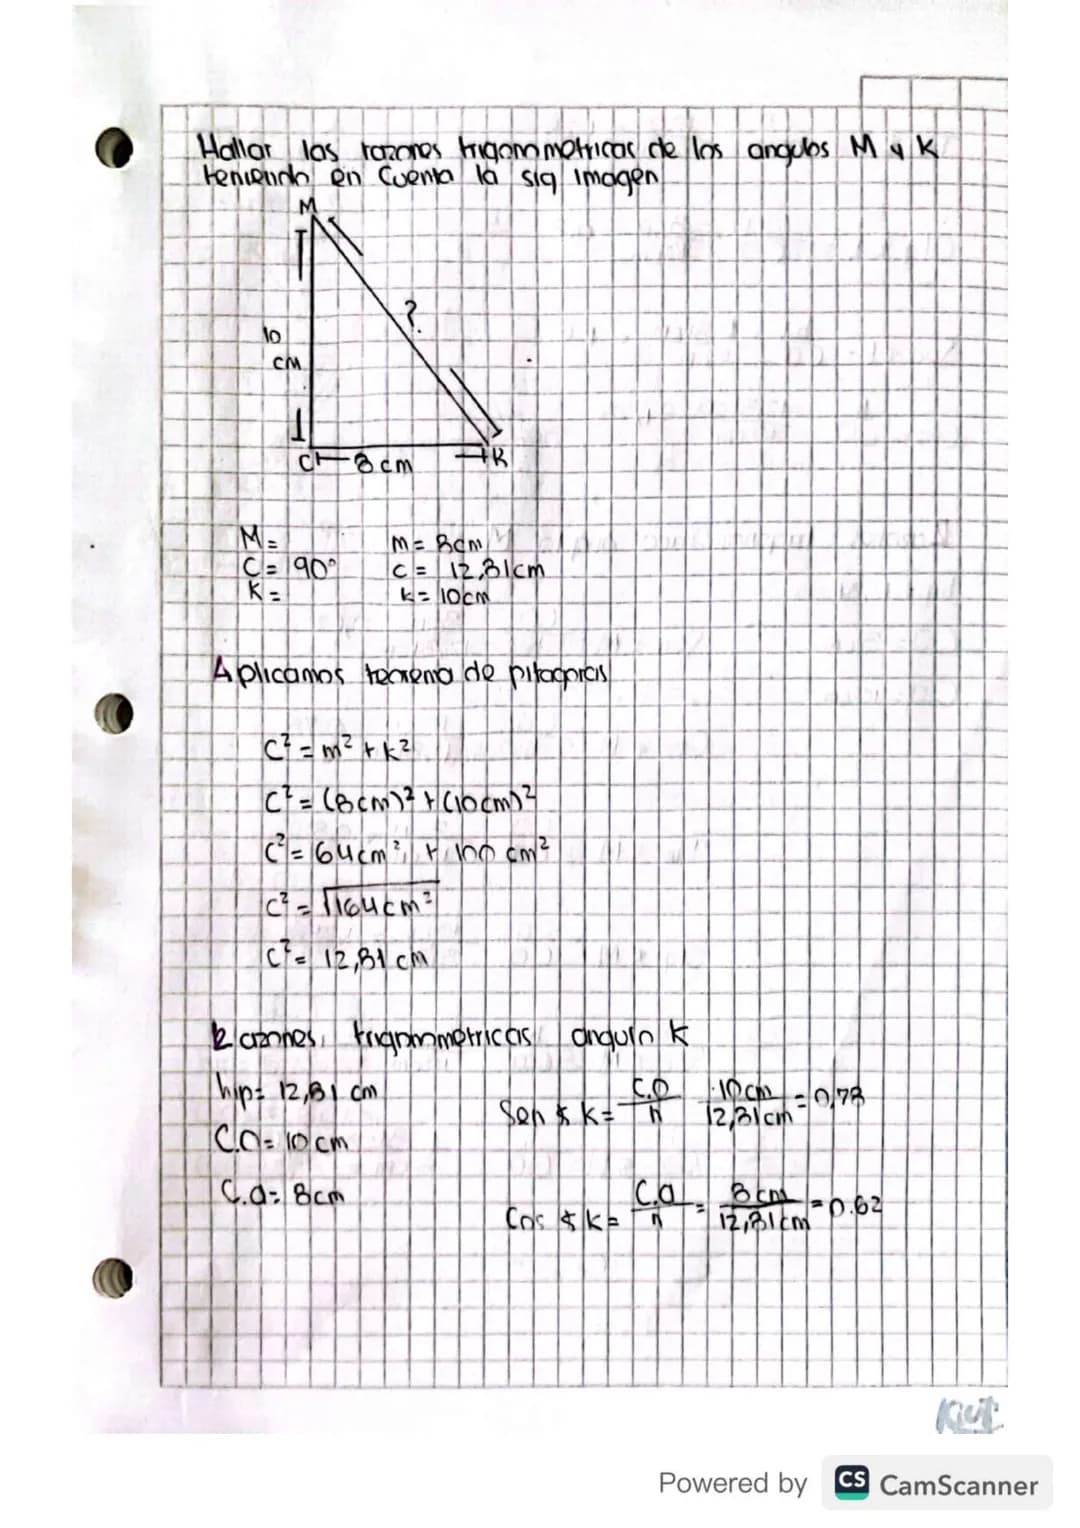 Hallar las razones trigonometricas de los angulos M y K
teniendo en Cuenta la sig imagen
M
?
10
cm
C 8 cm K
M= m= 8cm
C= 90° c= 12,81cm
K= k= 10cm
Aplicamos teorema de pitagoras
C² = m² + k²
C² = (8cm)² + (10cm)²
C² = 64cm² + 100 cm²
C² = √164cm²
C² = 12,81 cm
Razones trigonometricas angulo K
hip= 12,81 cm Sen ∡ K= C.O/h 10cm/12,81cm = 0,78
C.O= 10 cm
C.a= 8cm Cos ∡ K= C.a/h = 8cm/12,81cm = 0.62
Powered by CS CamScanner